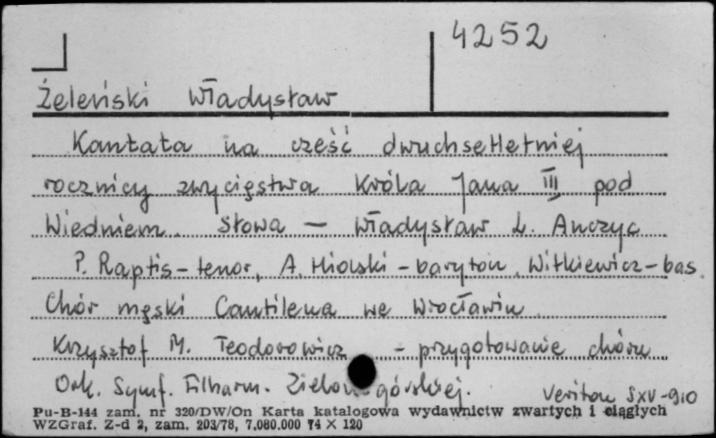 4252
Żeleński Władysław
Kantata na cześć dwuchsetletniej
rocznicy zwycięstwa Króla Jana III pod
Wiedniem. Słowa — Władysław L. Anczyc
P. Raptis - tenor, A. Hiolski - baryton, Witkiewicz - bas
Chór męski Cantilena we Wrocławiu
Krzysztof M. Teodorowicz - przygotowanie chóru
Ork. Symf. Filharm. Zielonogórskiej. Veriton SXV-910
Pu-B-144 zam. nr 320/DW/On Karta katalogowa wydawnictw zwartych i ciągłych
WZGraf. Z-d 2, zam. 203/78, 7,080.000 74 X 120